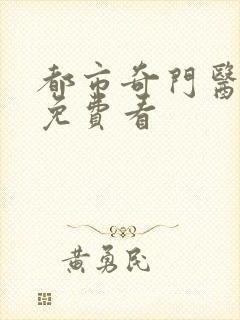 都市奇門醫
免費看
黃勇民